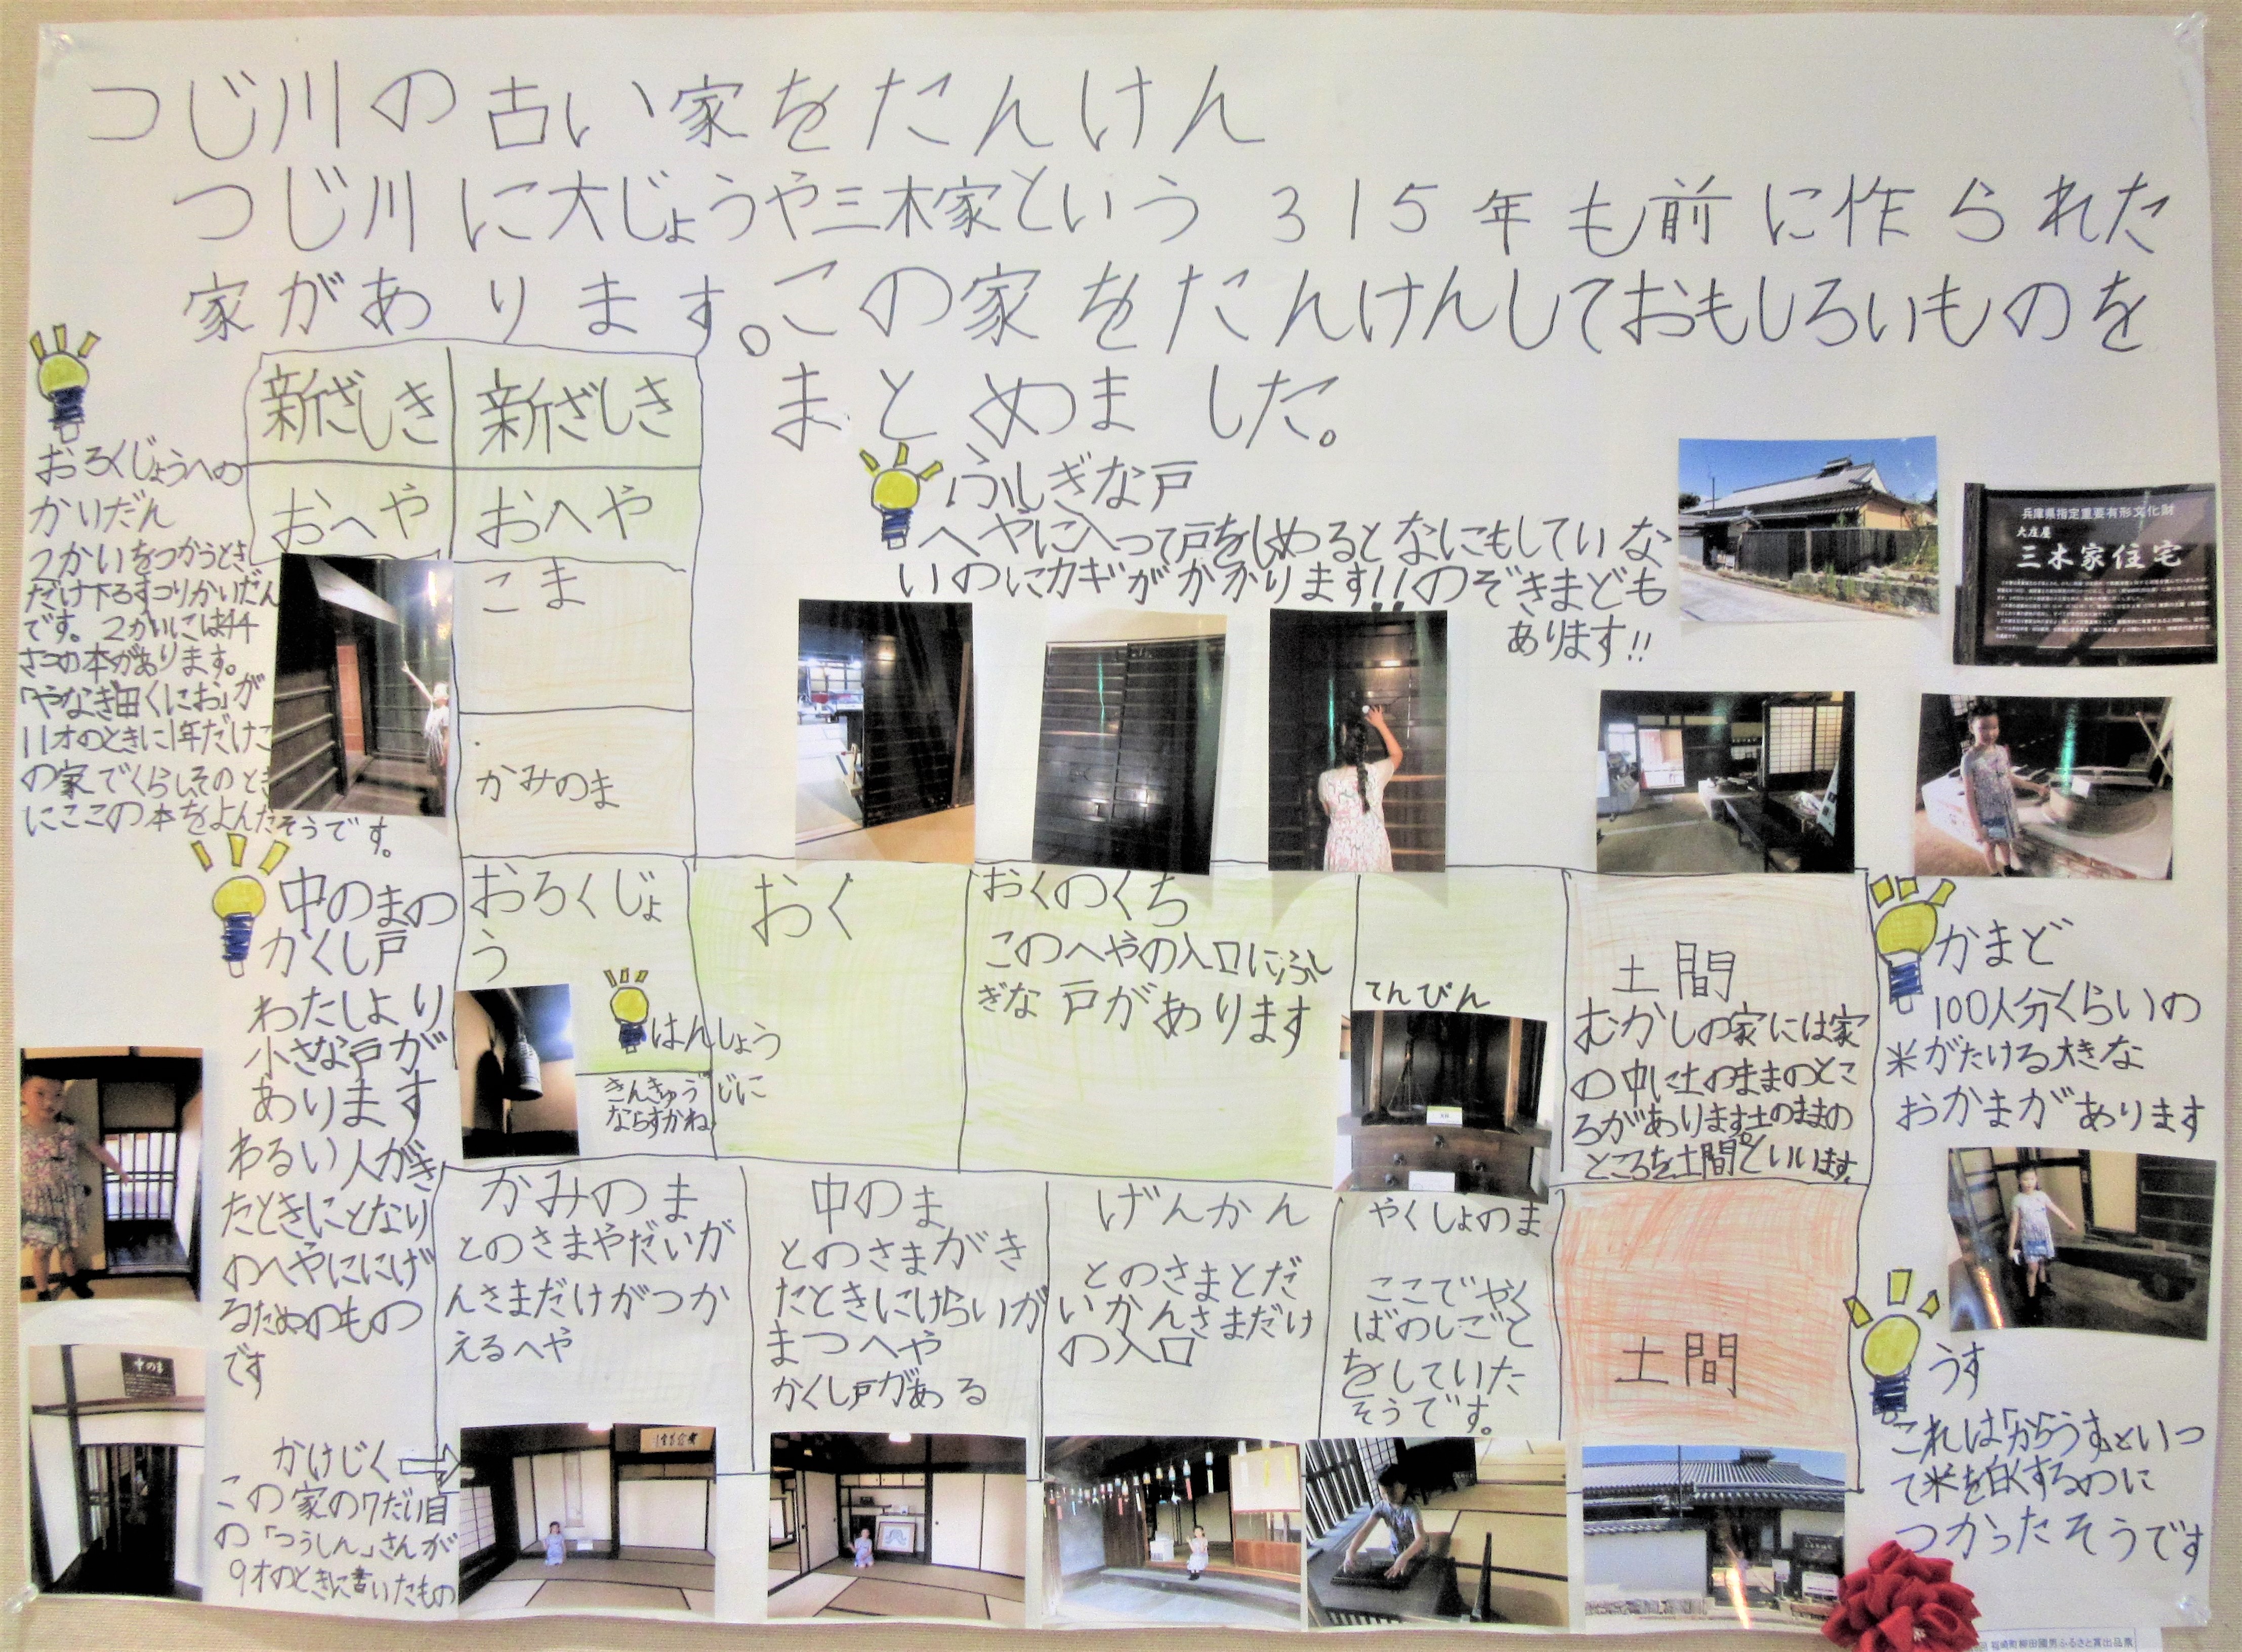 つじ川の古い家をたんけん
つじ川に大じょうや三木家という315年も前に作られた
家があります。この家をたんけんしておもしろいものを
まとめました。
おろくじょうへの
かいだん
2かいをつかうとき
だけ下ろすつりかいだん
です。2かいには44
さつの本があります。
「やなぎ田くにお」が
11才のときに1年だけこ
の家でくらしそのとき
にここの本をよんだそうです。
新ざしき
新ざしき
おへや
おへや
こま
かみのま
ふしぎな戸
へやに入って戸をしめるとなにもしていな
いのにカギがかかります!!のぞきまども
あります!!
兵庫県指定重要有形文化財
大庄屋
三木家住宅
中のまの
かくし戸
わたしより
小さな戸が
あります
わるい人がき
たときにとなり
のへやににげ
るためのもの
です
おろくじょ
う
はんしょう
きんきゅうじに
ならすかね
おく
おくのくち
このへやの入口にふし
ぎな戸があります
てんびん
土間
むかしの家には家
の中に土のままのとこ
ろがあります土のままの
ところを土間といいます。
かまど
100人分くらいの
米がたける大きな
おかまがあります
かみのま
とのさまやだいか
んさまだけがつか
えるへや
中のま
とのさまがき
たときにけらいが
まつへや
かくし戸がある
げんかん
とのさまとだ
いかんさまだけ
の入口
やくしょのま
ここでやく
ばのしごと
をしていた
そうです。
土間
うす
これは「からうす」といっ
て米を白くするのに
つかったそうです
中の間
かけじく
この家の7だい目
の「つうしん」さんが
9才のときに書いたもの
福崎町柳田國男ふるさと賞出品票